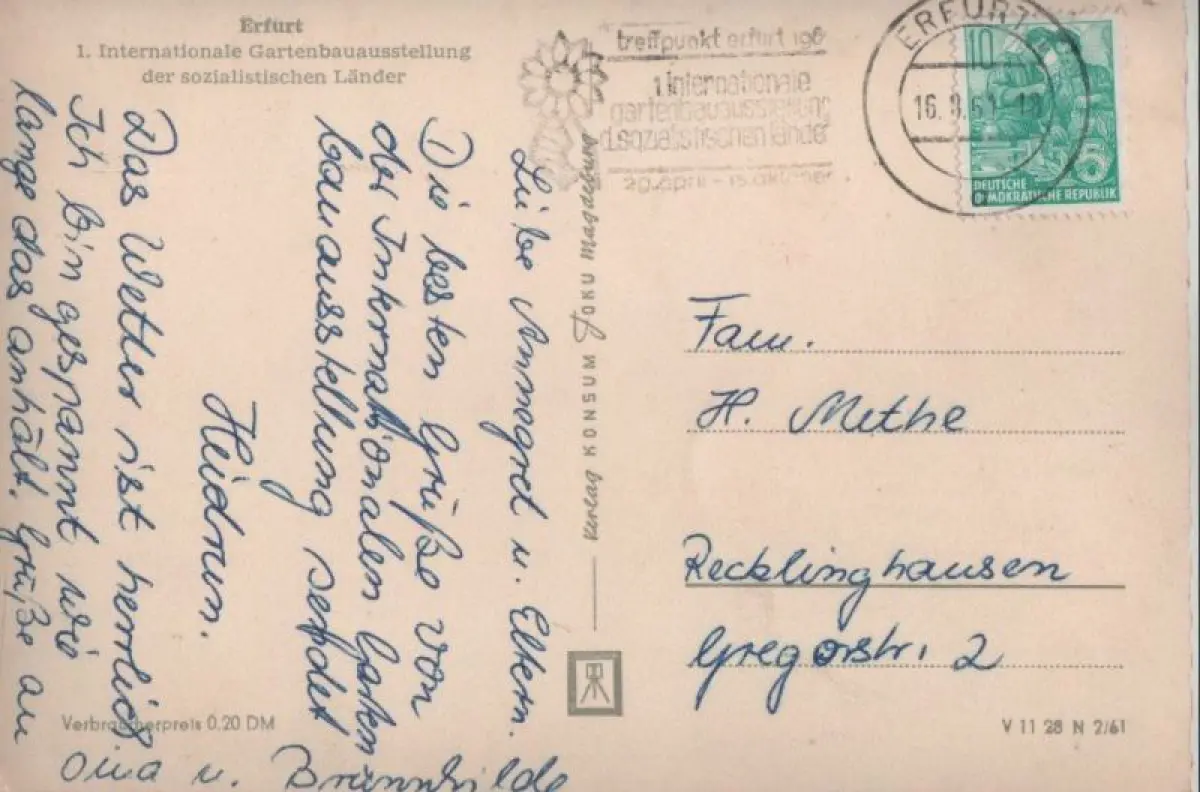 Erfurt
1. Internationale Gartenbauausstellung
der sozialistischen Länder
treffpunkt erfurt 196
1. internationale
gartenbauausstellung
d. sozialistischen länder
20. april - 15. oktober
ERFURT
16. 8. 61. 18
10
5
DEUTSCHE
DEMOKRATISCHE REPUBLIK
Liebe Annegret u. Eltern.
Die besten Grüße von
der Internationalen Garten
bauausstellung sendet
Heidrun.
Das Wetter ist herrlich
Ich bin gespannt wie
lange das anhält. Grüße an
Oma u. Brunnhilde
Verlag KONSUM FOKU Magdeburg
Fam.
H. Methe
Recklinghausen
Gregorstr. 2
Verbraucherpreis 0.20 DM
V 11 28 N 2/61